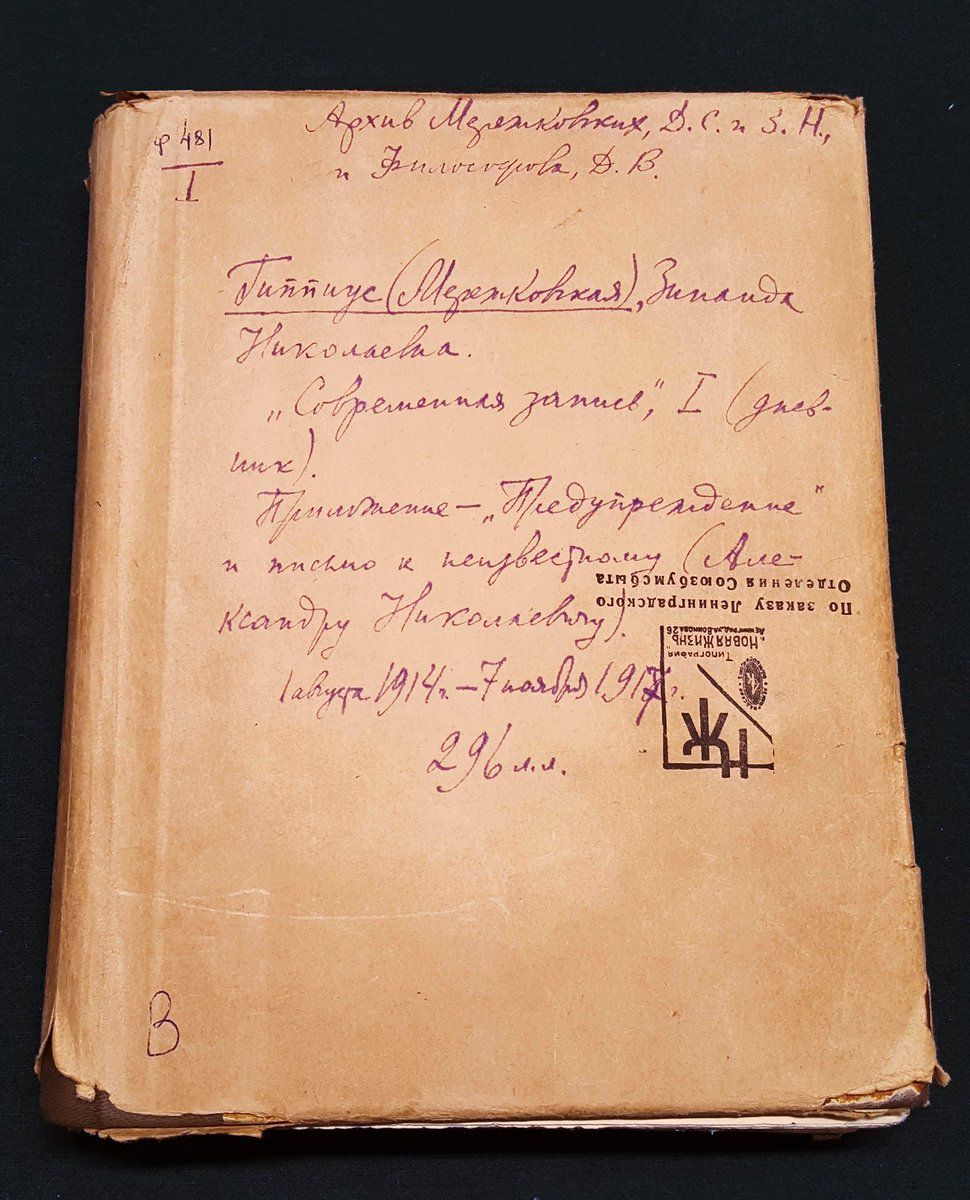 Ф 481
I
Архив Мережковских, Д. С. и З. Н.,
и Философова, Д. В.
Гиппиус (Мережковская), Зинаида
Николаевна.
„Современная запись", I (днев-
ник).
Приложение — „Предупреждение"
и письмо к неизвестному (Але-
ксандру Николаевичу).
1 августа 1914 г. — 7 ноября 1917 г.
296 л.л.
По заказу Ленинградского
Отделения Союзбумсбыта
Типография
„НОВАЯ ЖИЗНЬ"
Ленинград, ул. Воинова 26
НЖ
В